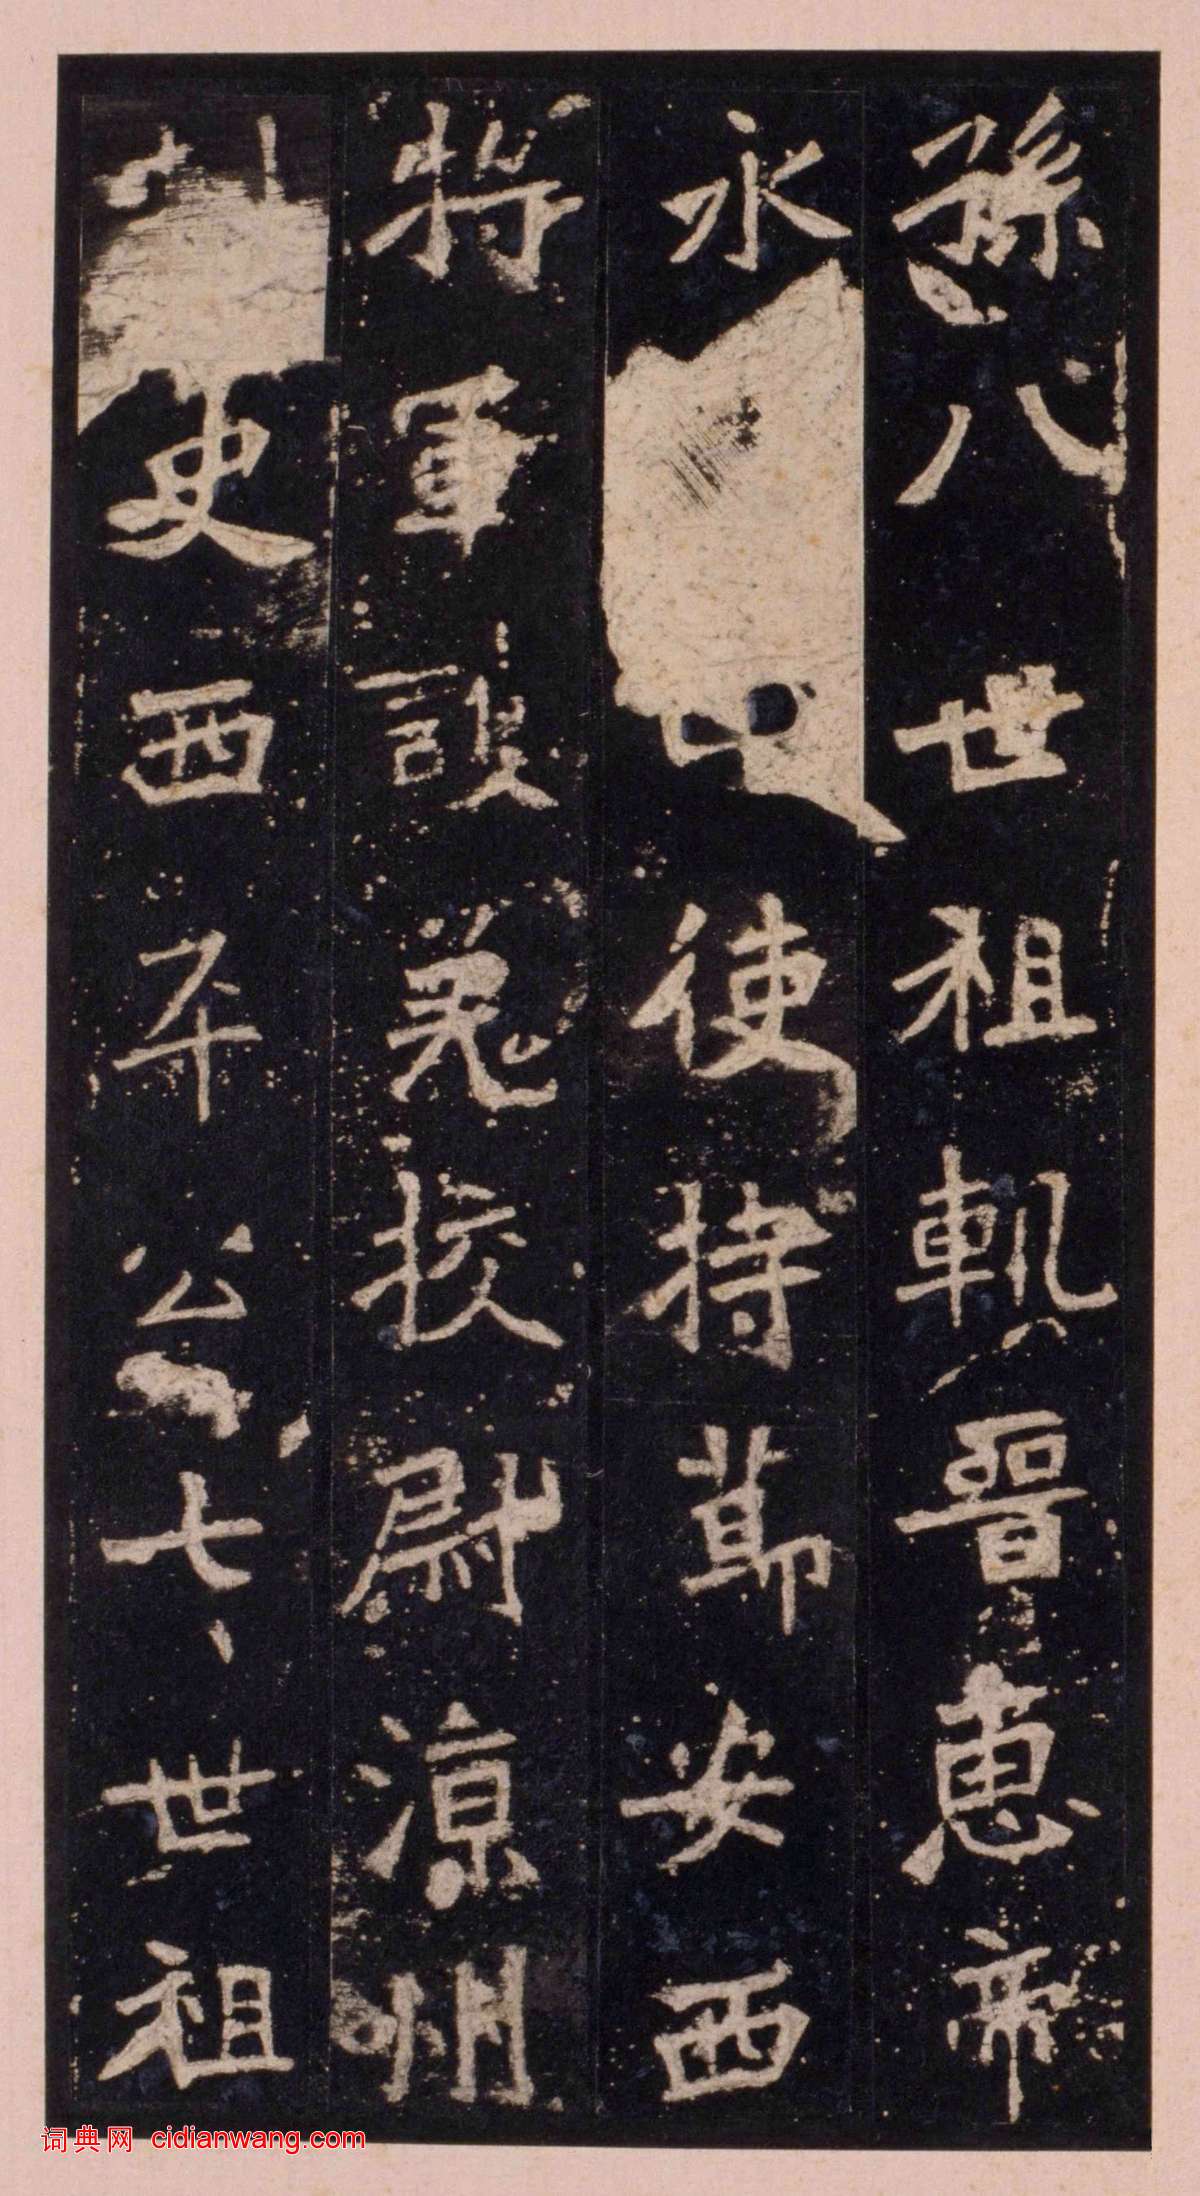 孫八世祖軌晉惠帝
永中使持節安西
將軍護羌校尉涼州
史西平公七世祖
词典网 cidianwang.com